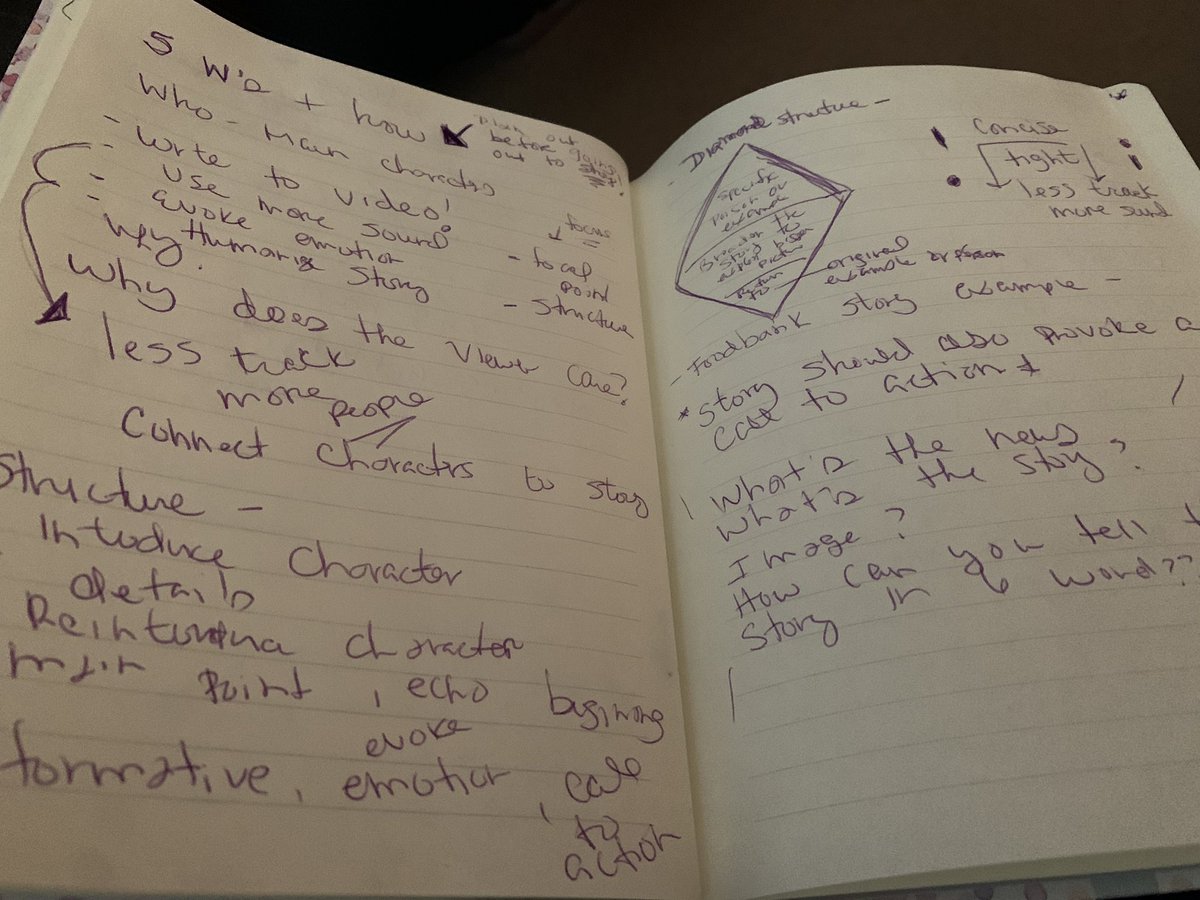 5 W's + how
Plan out
before going
out to shoot!
Who - Main character
- Write to video!
- Use more sound
- Evoke emotion
Humanize Story
Why does the viewer care?
focus
- focal
point
- structure
less track
more people
Connect characters to story
Structure -
Introduce Character
details
character
main point, echo
evoke
formative, emotion, call
to
action
- Diamond structure -
Specific
person or
example
Broaden the
story to
picture
Return
to
original
example or person
Concise
tight
less track
more sound
- Foodbank story example -
* Story should also provoke a
call to action *
What's the news
What's the story?
Image?
How can you tell
story in 6 word??